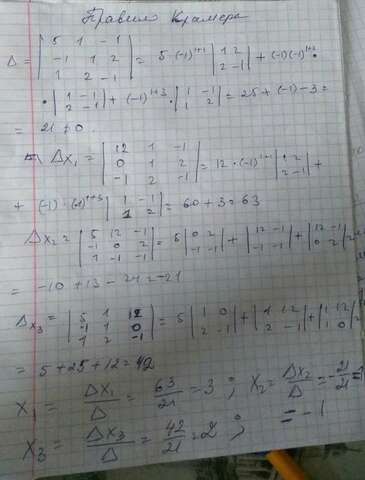 Правило Крамера
Δ = | 5 1 -1 | = 5·(-1)¹⁺¹ | 1 2 | + (-1)(-1)¹⁺²·
| -1 1 2 | | 2 -1 |
| 1 2 -1 |
· | 1 -1 | + (-1)¹⁺³ · | 1 -1 | = 25 + (-1) - 3 =
| 2 -1 | | 1 2 |
= 21 ≠ 0.
Δx₁ = | 12 1 -1 | = 12·(-1)¹⁺¹ | 1 2 | +
| 0 1 2 | | 2 -1 |
| -1 2 -1 |
+ (-1)·(-1)¹⁺³ | 1 -1 | = 60 + 3 = 63
| 1 2 |
Δx₂ = | 5 12 -1 | = 5 | 0 2 | + | 12 -1 | + | 12 -1 | =
| -1 0 2 | | -1 -1 | | -1 -1 | | 0 2 |
| 1 -1 -1 |
= -10 + 13 - 24 = -21
Δx₃ = | 5 1 12 | = 5 | 1 0 | + | 1 12 | + | 1 12 |
| -1 1 0 | | 2 -1 | | 2 -1 | | 1 0 |
| 1 2 -1 |
= 5 + 25 + 12 = 42
x₁ = Δx₁/Δ = 63/21 = 3 ; x₂ = Δx₂/Δ = -21/21 =
= -1
x₃ = Δx₃/Δ = 42/21 = 2 ;